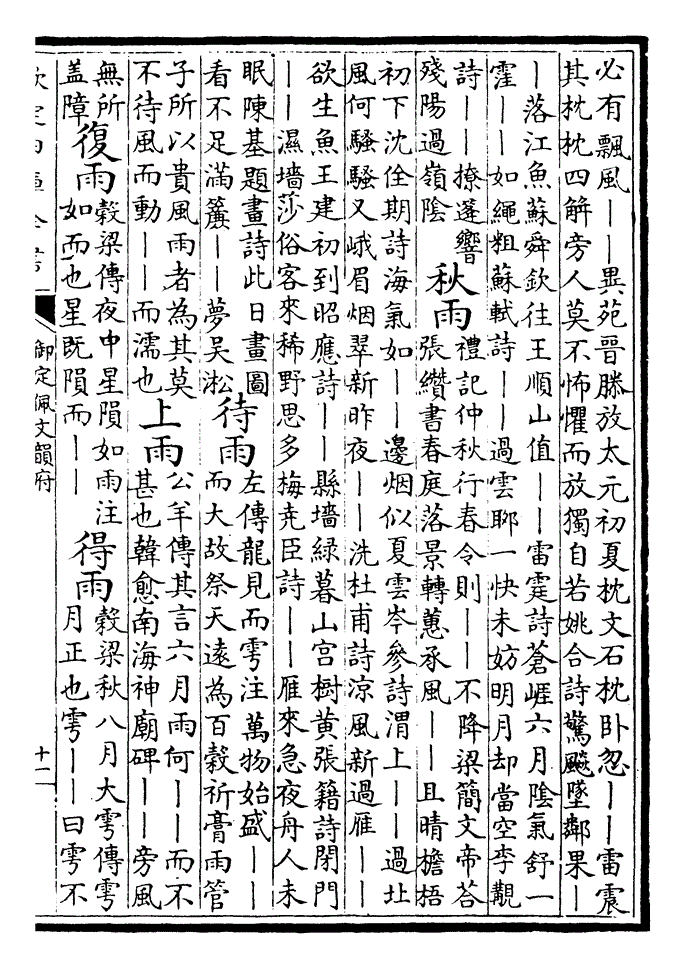 必有飄風丨丨異苑晉滕放太元初夏枕文石枕卧忽丨丨雷震
其枕枕四解旁人莫不怖懼而放獨自若姚合詩驚飈墜鄰果丨
丨落江魚蘇舜欽往王順山值丨丨雷霆詩蒼崕六月陰氣舒一
霔丨丨如繩粗蘇軾詩丨丨過雲聊一快未妨明月却當空李覯
詩丨丨撩蓬響
殘陽過嶺陰
秋雨
禮記仲秋行春令則丨丨不降梁簡文帝荅
張纘書春庭落景轉蕙承風丨丨且晴檐梧
初下沈佺期詩海氣如丨丨邊烟似夏雲岑參詩渭上丨丨過北
風何騷騷又峨眉烟翠新昨夜丨丨洗杜甫詩涼風新過雁丨丨
欲生魚王建初到昭應詩丨丨縣墻緑暮山宫樹黄張籍詩閉門
丨丨濕墻莎俗客來稀野思多梅堯臣詩丨丨雁來急夜舟人未
眠陳基題畫詩此日畫圖
看不足滿簾丨丨夢吳淞
待雨
左傳龍見而雩注萬物始盛丨丨
而大故祭天遠為百穀祈膏雨管
子所以貴風雨者為其莫
不待風而動丨丨而濡也
上雨
公羊傳其言六月雨何丨丨而不
甚也韓愈南海神廟碑丨丨旁風
無所
蓋障
復雨
榖梁傳夜中星隕如雨注
如而也星既隕而丨丨
得雨
榖梁秋八月大雩傳雩
月正也雩丨丨曰雩不
欽定四庫全書
御定佩文韻府
十一